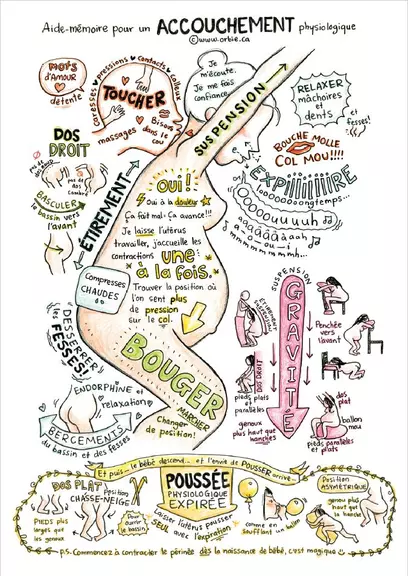 Aide-mémoire pour un ACCOUCHEMENT physiologique
©www.orbie.ca
MOTS
d'AMOUR
détente
caresses • pressions • contacts • calleux
TOUCHER
massages
Bisous
dans le
cou
Je
m'écoute.
Je me fais
confiance.
SUSPENSION
RELAXER
mâchoires
et
dents
et
fesses!
BOUCHE MOLLE
COL MOU!!!!
EXPIIIIIIIRE
longtemps...
Ooooouuuuh
aaaààààààaah
a—ou—i
mmmmmmmmh...
DOS
DROIT
pas de
dos
cambré
BASCULER
le bassin vers
l'avant
ÉTIREMENT
OUI!
Oui à la douleur
Ça fait mal. Ça avance!!!
Je laisse l'utérus
travailler, j'accueille les
contractions une
à la fois.
Trouver la position où
l'on sent plus
de pression
sur le col.
Compresses
CHAUDES
DESSERRER
les FESSES!
ENDORPHINE et
relaxation
BERCEMENTS
du bassin et des fesses
BOUGER
MARCHER
Changer
de position!
SUSPENSION
GRAVITÉ
Penchée
vers
l'avant
DOS DROIT
pieds plats
et
parallèles
genoux
plus haut que
hanches
dos
plat
ballon
mou
pieds parallèles
et plats
Et puis... le bébé descend... et l'envie de POUSSER arrive...
DOS PLAT
Position
CHASSE-NEIGE
PIEDS plus
larges que
les genoux
Pour
ouvrir le
bassin
POUSSÉE
PHYSIOLOGIQUE
EXPIRÉE
Laisser l'utérus pousser
SEUL avec l'expiration
comme en
soufflant un
ballon
Position
ASYMÉTRIQUE
genou plus
haut que
la hanche
p.s. Commencez à contracter le périnée dès la naissance de bébé, c'est magique